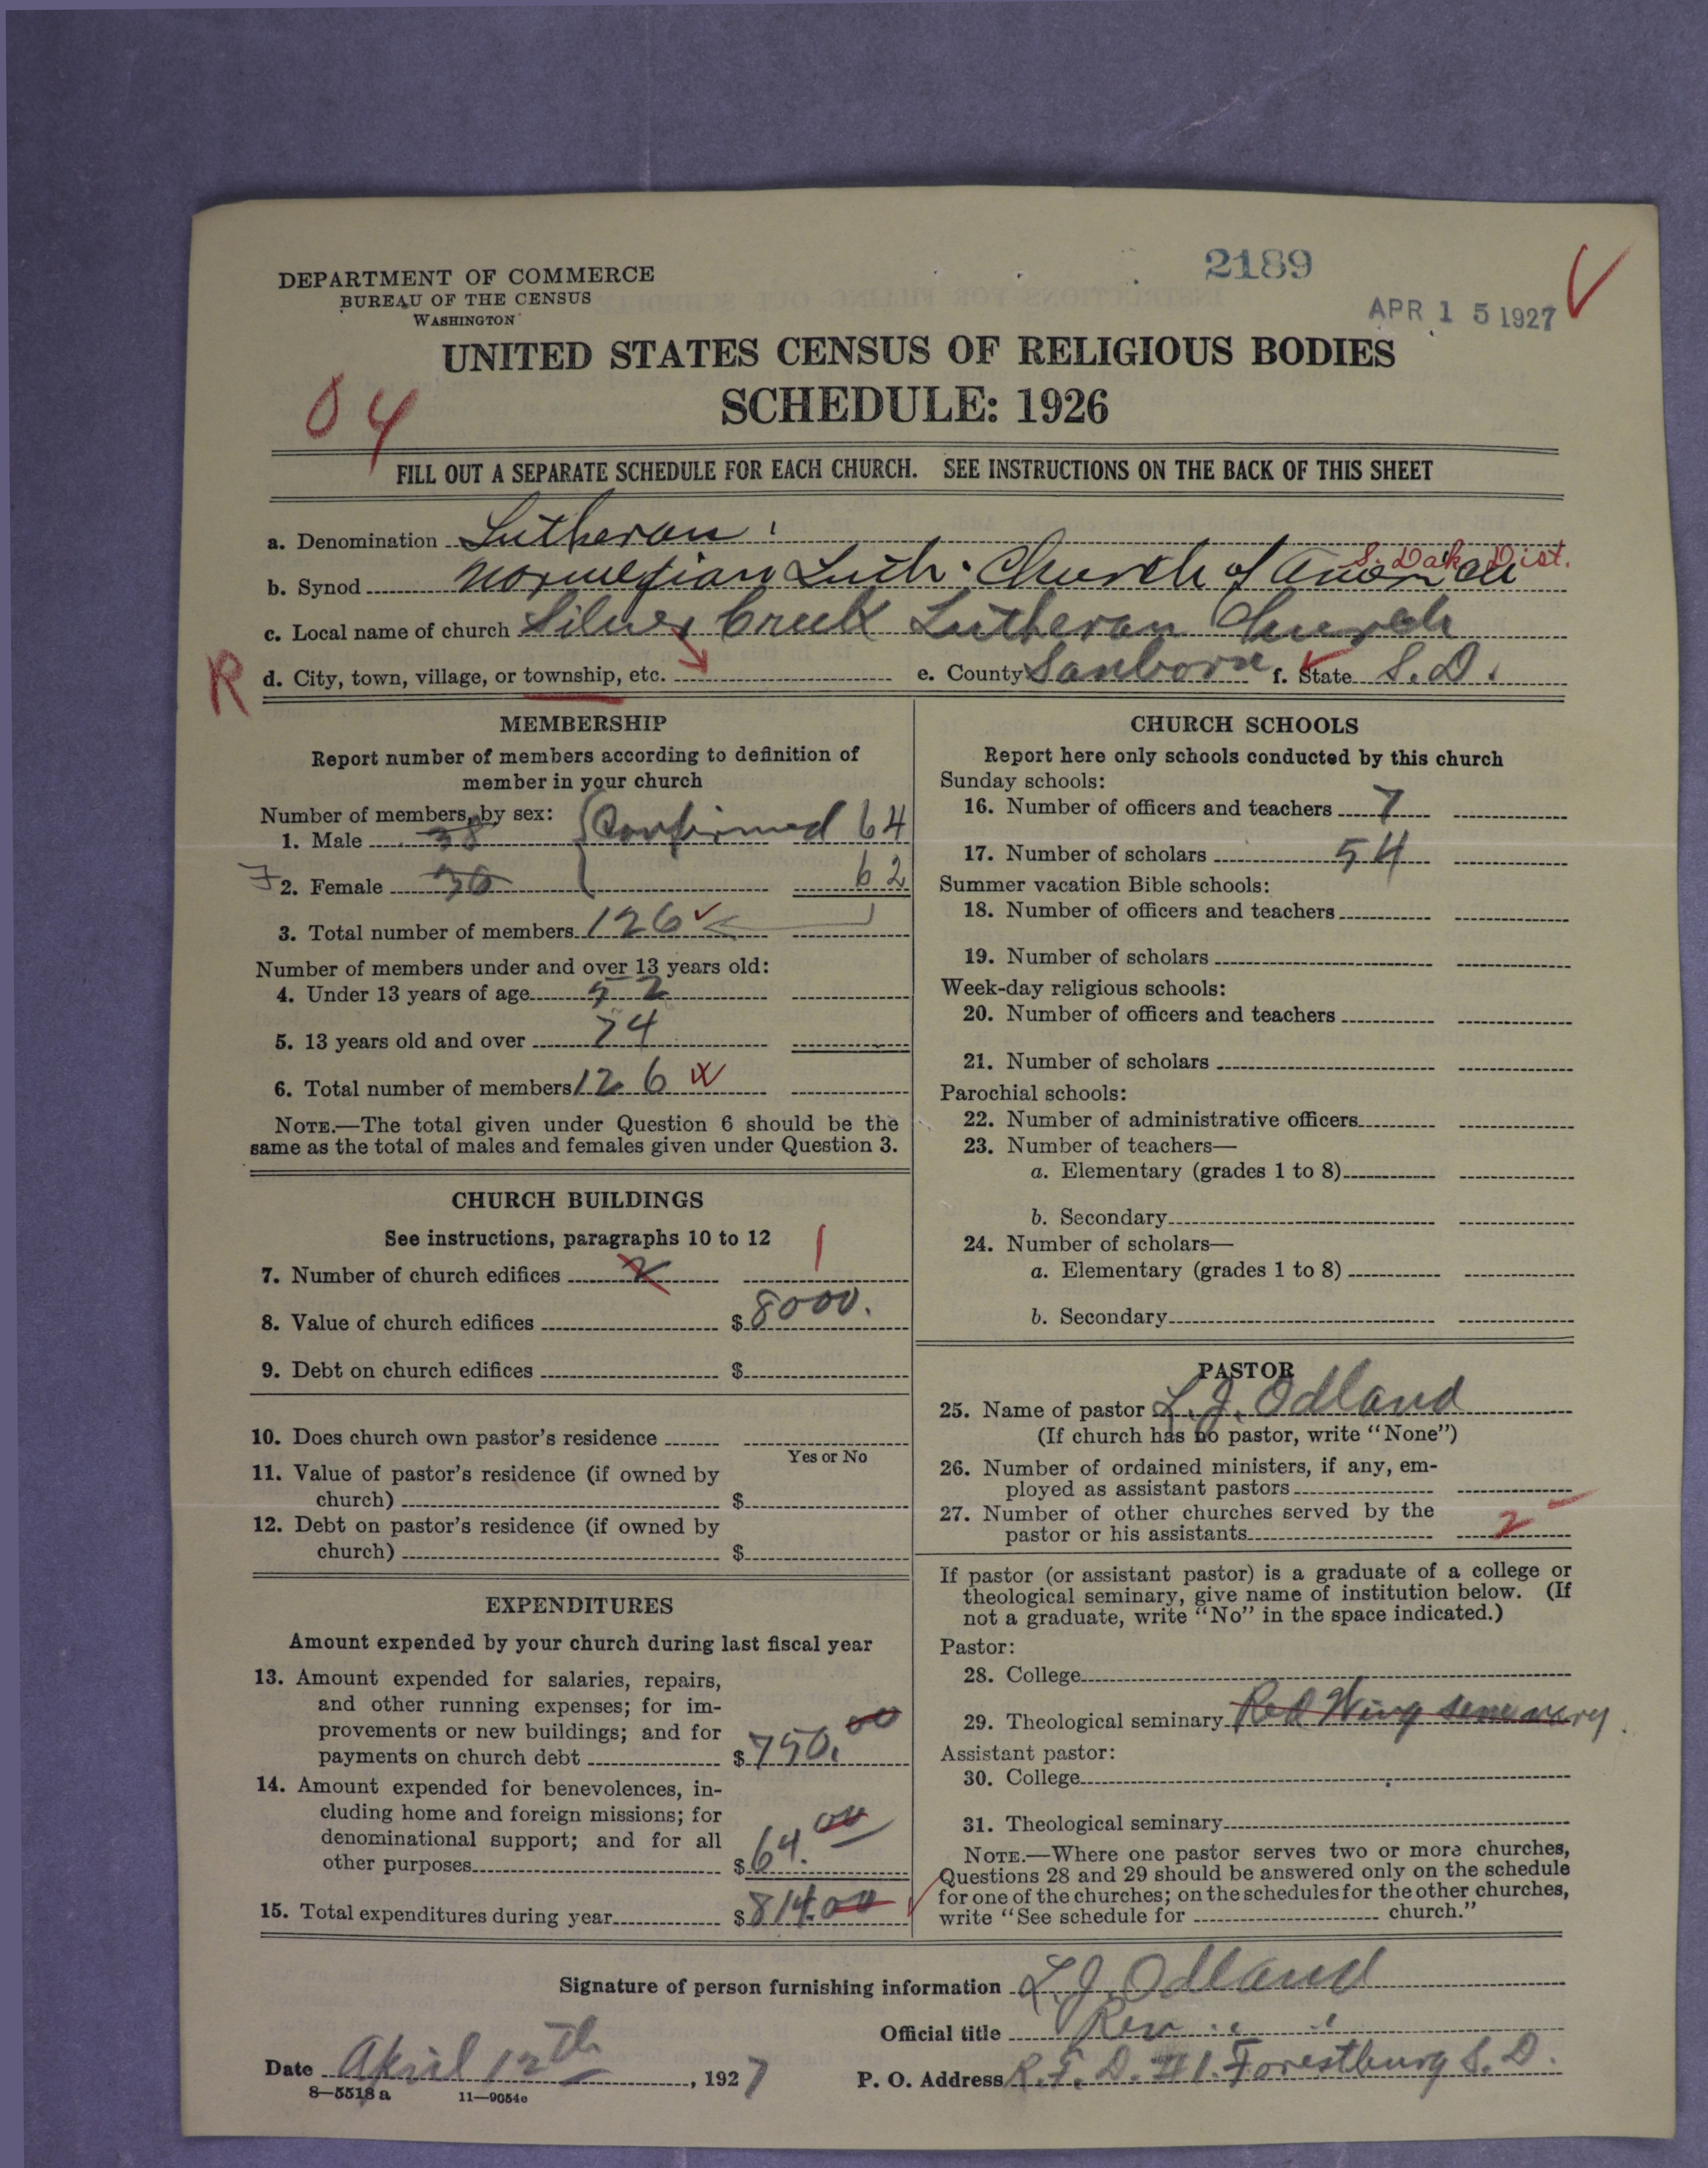 2189
APR 15 1927
DEPARTMENT OF COMMERCE
BUREAU OF THE CENSUS
WASHINGTON
UNITED STATES CENSUS OF RELIGIOUS BODIES
SCHEDULE: 1926
04
FILL OUT A SEPARATE SCHEDULE FOR EACH CHURCH. SEE INSTRUCTIONS ON THE BACK OF THIS SHEET
a. Denomination Lutheran
S. Dak Dist.
b. Synod Norwegian Luth. Church of America
c. Local name of church Silver Creek Lutheran Church
R d. City, town, village, or township, etc. e. County Sanborn f. State S.D.
MEMBERSHIP
Report number of members according to definition of
member in your church
Number of members, by sex:
1. Male 38 Confirmed 64
2. Female 62
3. Total number of members 126
Number of members under and over 13 years old:
4. Under 13 years of age 52
5. 13 years old and over 74
6. Total number of members 126
NOTE.—The total given under Question 6 should be the
same as the total of males and females given under Question 3.
CHURCH BUILDINGS
See instructions, paragraphs 10 to 12
7. Number of church edifices 1
8. Value of church edifices $8000.
9. Debt on church edifices $
10. Does church own pastor's residence
Yes or No
11. Value of pastor's residence (if owned by
church) $
12. Debt on pastor's residence (if owned by
church) $
EXPENDITURES
Amount expended by your church during last fiscal year
13. Amount expended for salaries, repairs,
and other running expenses; for im-
provements or new buildings; and for
payments on church debt $750.00
14. Amount expended for benevolences, in-
cluding home and foreign missions; for
denominational support; and for all
other purposes $64.00
15. Total expenditures during year $814.00
CHURCH SCHOOLS
Report here only schools conducted by this church
Sunday schools:
16. Number of officers and teachers 7
17. Number of scholars 54
Summer vacation Bible schools:
18. Number of officers and teachers
19. Number of scholars
Week-day religious schools:
20. Number of officers and teachers
21. Number of scholars
Parochial schools:
22. Number of administrative officers
23. Number of teachers—
a. Elementary (grades 1 to 8)
b. Secondary
24. Number of scholars—
a. Elementary (grades 1 to 8)
b. Secondary
PASTOR
25. Name of pastor L.J. Odland
(If church has no pastor, write "None")
26. Number of ordained ministers, if any, em-
ployed as assistant pastors
27. Number of other churches served by the
pastor or his assistants 2
If pastor (or assistant pastor) is a graduate of a college or
theological seminary, give name of institution below. (If
not a graduate, write "No" in the space indicated.)
Pastor:
28. College
29. Theological seminary Red Wing seminary
Assistant pastor:
30. College
31. Theological seminary
NOTE.—Where one pastor serves two or more churches,
Questions 28 and 29 should be answered only on the schedule
for one of the churches; on the schedules for the other churches,
write "See schedule for church."
Signature of person furnishing information L.J. Odland
Official title Rev
Date April 12th, 1927 P. O. Address R.F.D. #1. Forestburg S.D.
8—5518 a 11—9054c